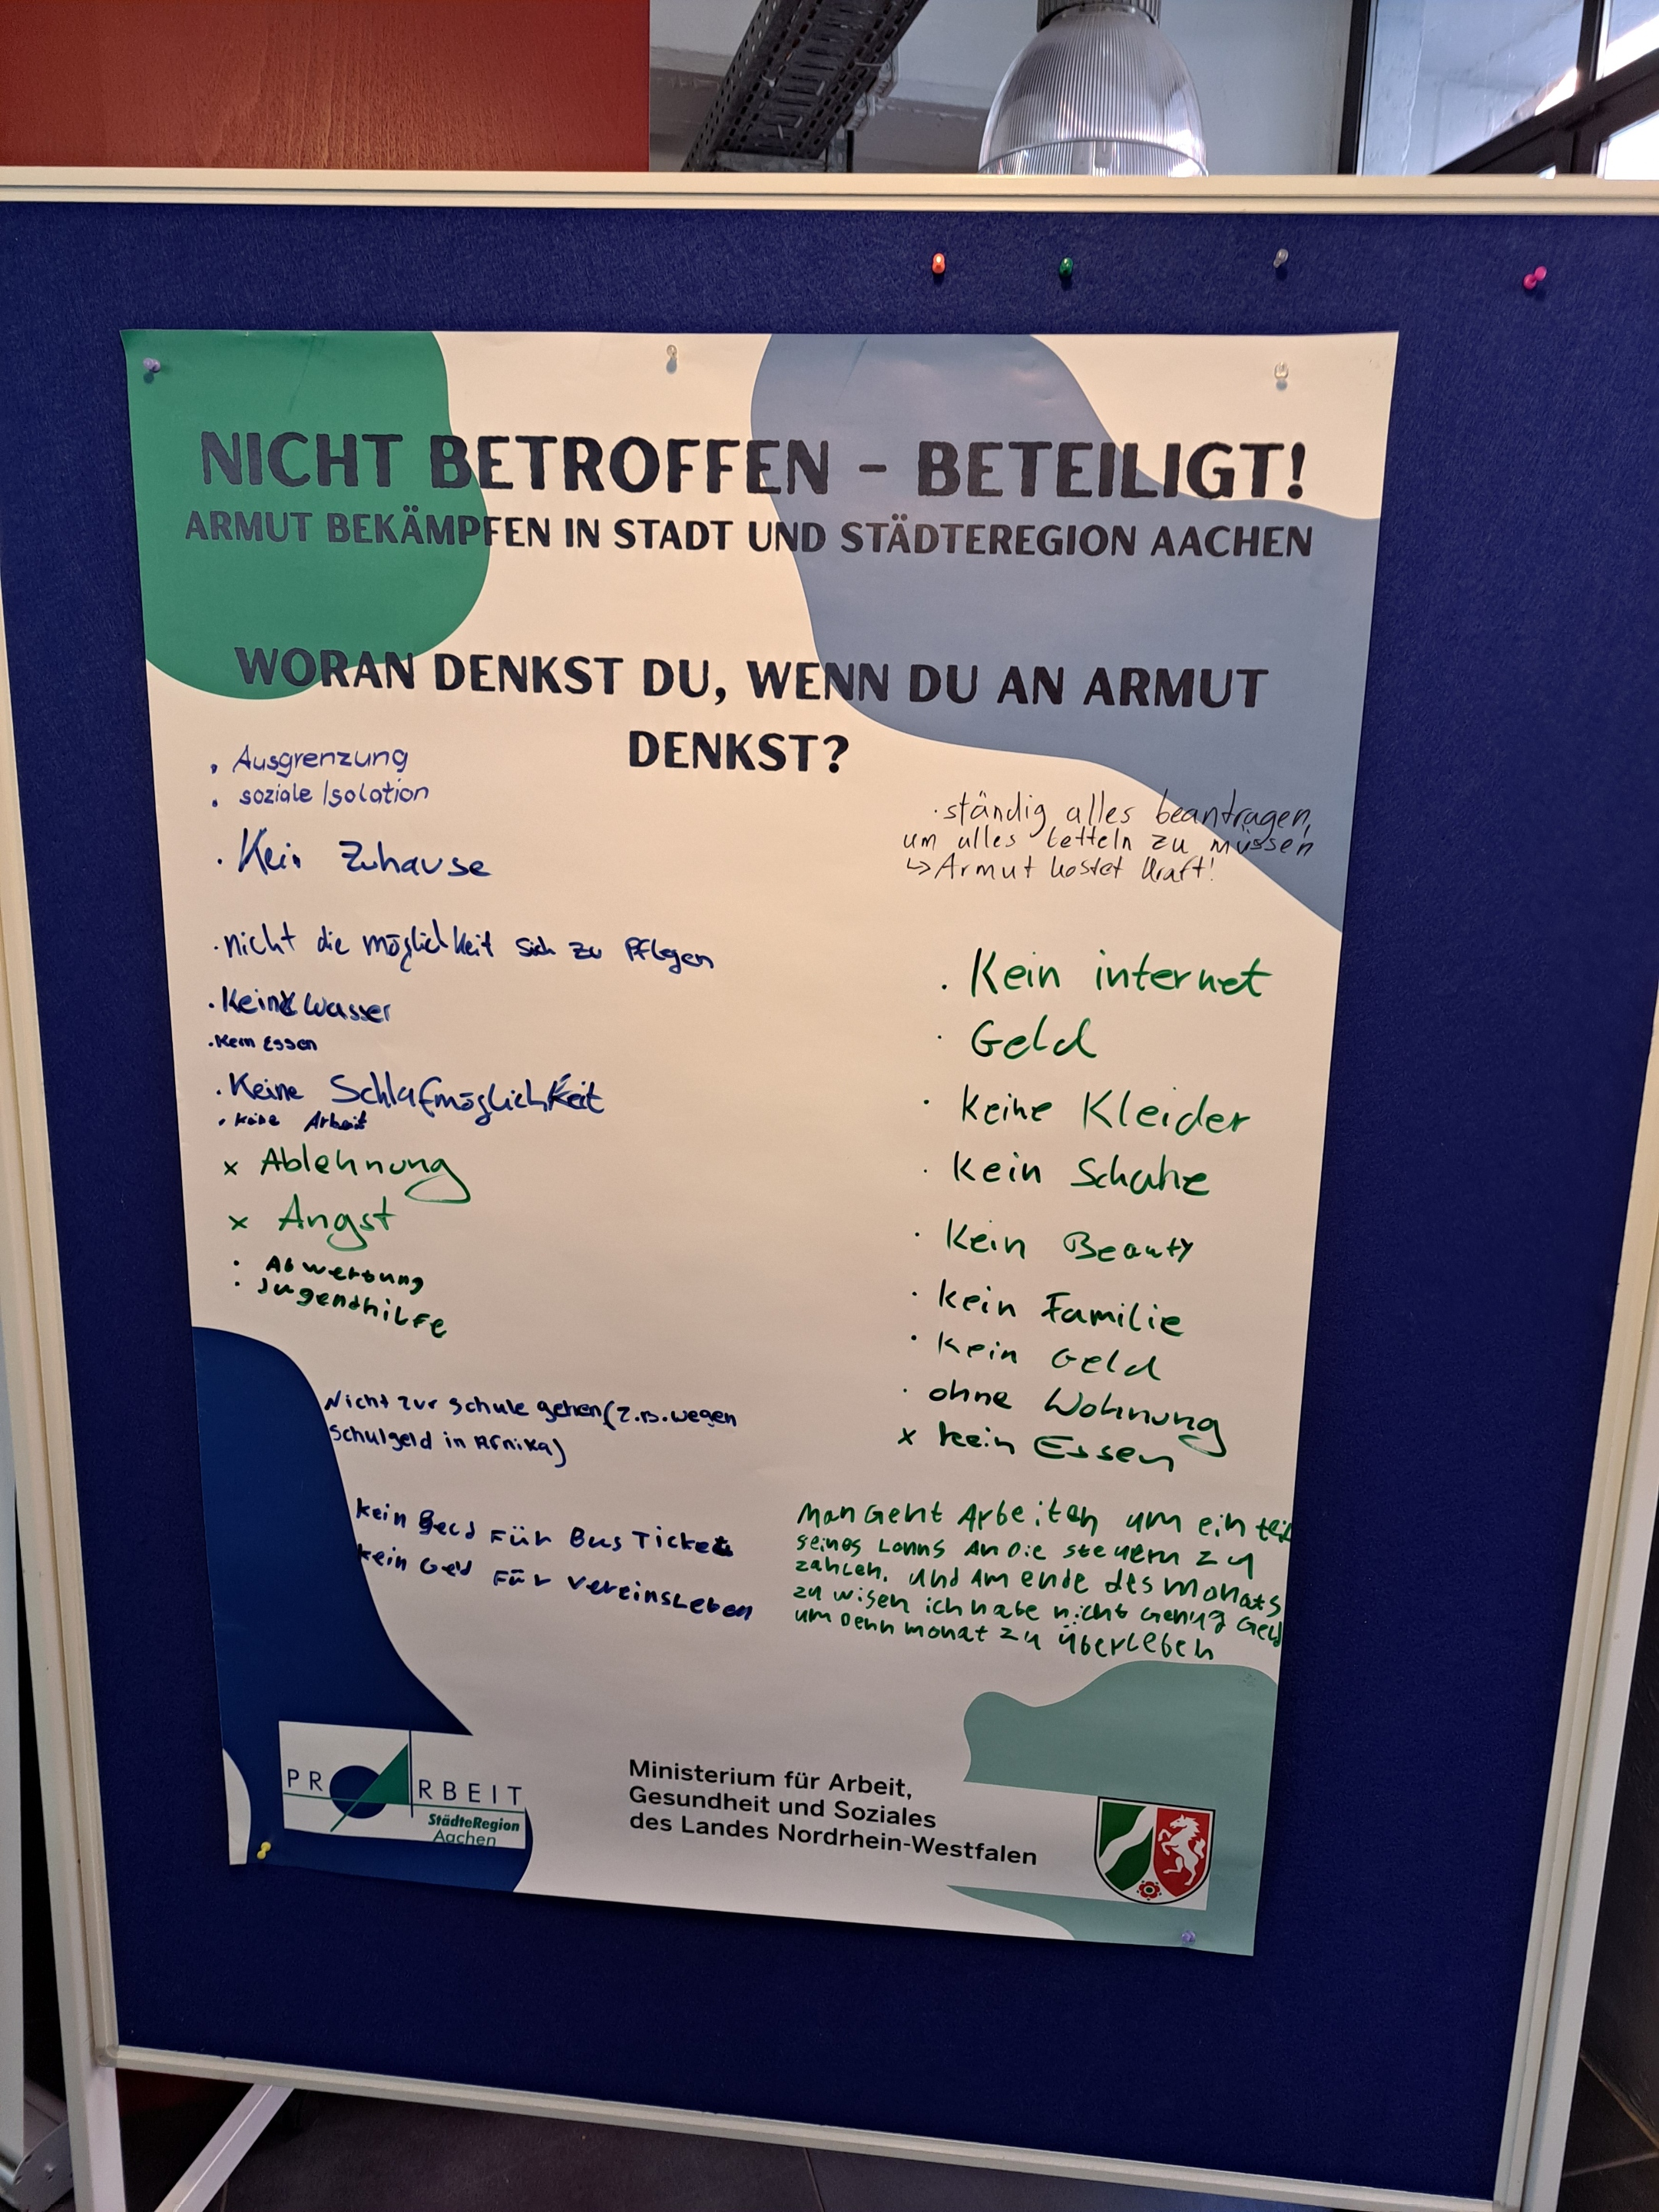 NICHT BETROFFEN - BETEILIGT!
ARMUT BEKÄMPFEN IN STADT UND STÄDTEREGION AACHEN
WORAN DENKST DU, WENN DU AN ARMUT
DENKST?
. Ausgrenzung
. soziale Isolation
. Kein Zuhause
. nicht die möglichkeit sich zu Pflegen
. Kein Wasser
. Kein Essen
. Keine Schlafmöglichkeit
. keine Arbeit
x Ablehnung
x Angst
. Abwertung
. Jugendhilfe
Nicht zur schule gehen (z.B. wegen
Schulgeld in Afrika)
kein Geld Für Bus Ticket
kein Geld Für Vereinsleben
. ständig alles beantragen,
um alles betteln zu müssen
↳ Armut kostet Kraft!
. Kein internet
. Geld
. keine Kleider
. Kein Schuhe
. Kein Beauty
. kein Familie
. kein Geld
. ohne Wohnung
x kein Essen
Man Geht Arbeiten um ein teil
seines Lohns An Die steuern zu
zahlen. und Am ende des Monats
zu wisen ich habe nicht Genug Geld
um Denn monat zu überleben
PRO ARBEIT
StädteRegion
Aachen
Ministerium für Arbeit,
Gesundheit und Soziales
des Landes Nordrhein-Westfalen